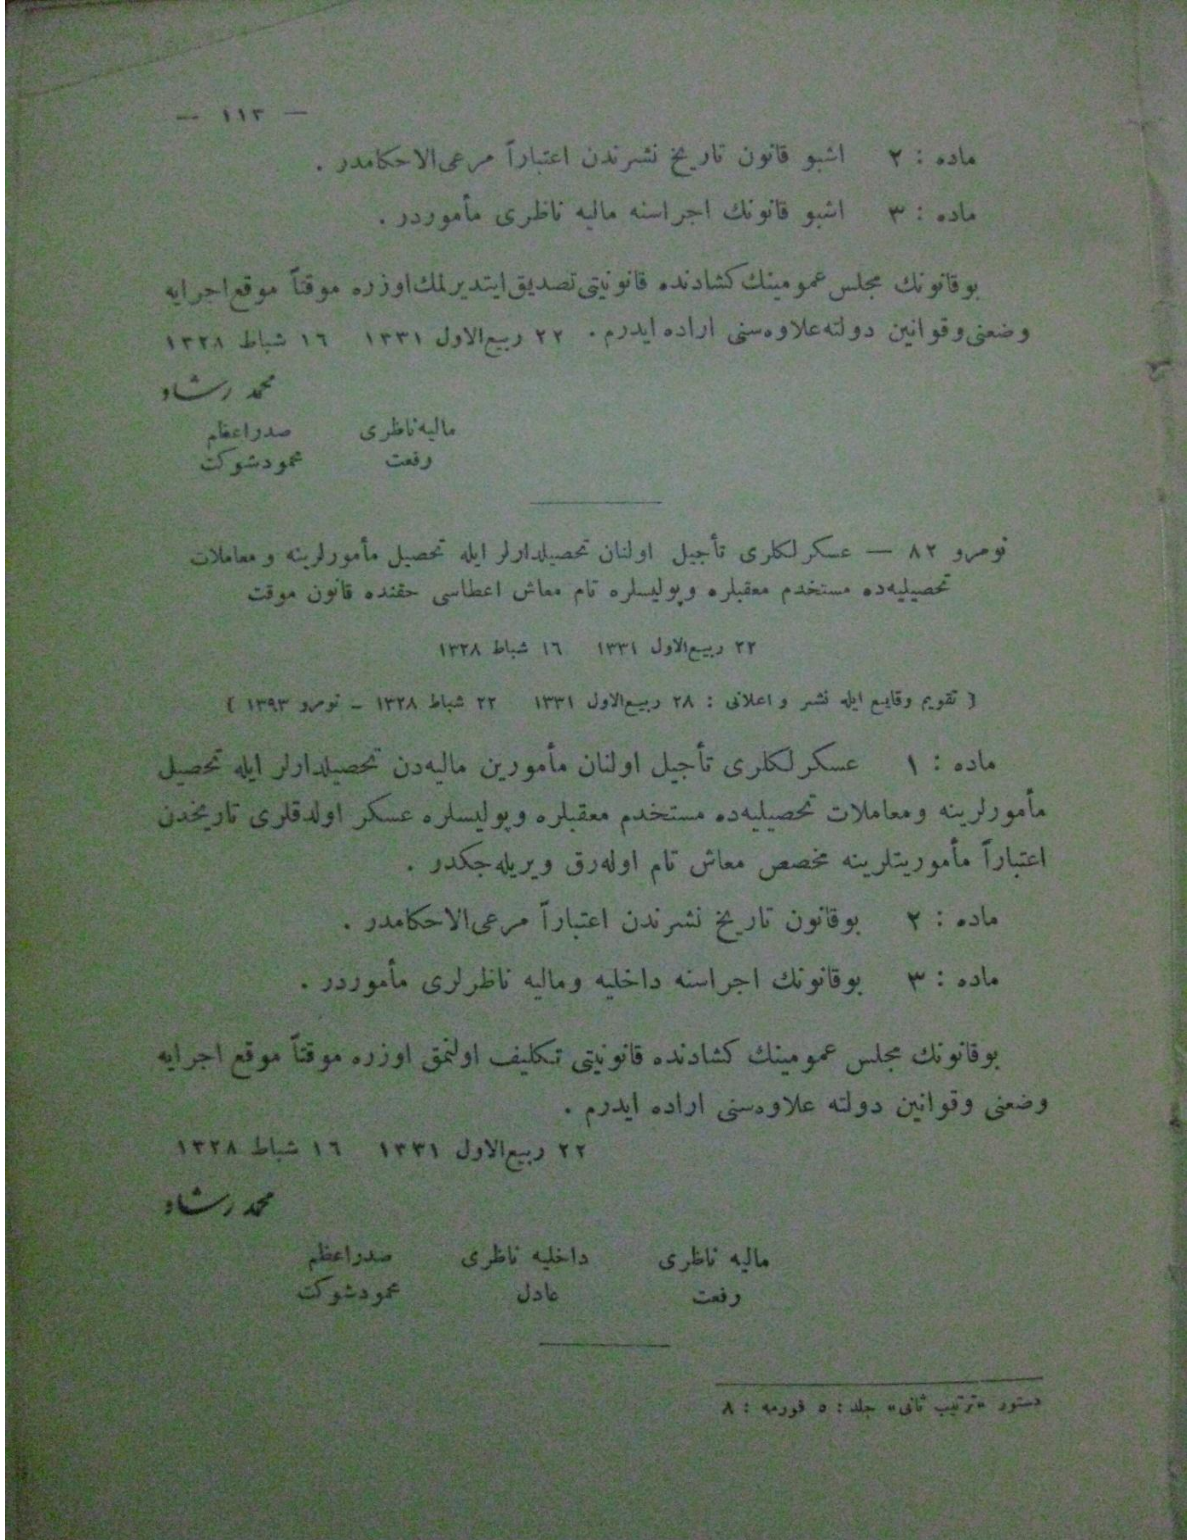 — ١١٣ —
ماده : ٢ اشبو قانون تاريخ نشرندن اعتباراً مرعی‌الاحكامدر .
ماده : ٣ اشبو قانونك اجراسنه ماليه ناظری مأموردر .
بوقانونك مجلس عمومينك كشادنده قانونيتی تصديق ايتديرلمك اوزره موقتاً موقع اجرايه
وضعنی وقوانين دولته علاوه‌سنی اراده ايدرم . ٢٢ ربيع‌الاول ١٣٣١ ١٦ شباط ١٣٢٨
محمد رشاد
ماليه ناظری صدراعظم
رفعت محمودشوكت
نومرو ٨٢ — عسكرلكلری تأجيل اولنان تحصيلدارلر ايله تحصيل مأمورلرينه و معاملات
تحصيليه‌ده مستخدم معقبلره وپوليسلره تام معاش اعطاسی حقنده قانون موقت
٢٢ ربيع‌الاول ١٣٣١ ١٦ شباط ١٣٢٨
[ تقويم وقايع ايله نشر و اعلانی : ٢٨ ربيع‌الاول ١٣٣١ ٢٢ شباط ١٣٢٨ — نومرو ١٣٩٣ ]
ماده : ١ عسكرلكلری تأجيل اولنان مأمورين ماليه‌دن تحصيلدارلر ايله تحصيل
مأمورلرينه ومعاملات تحصيليه‌ده مستخدم معقبلره وپوليسلره عسكر اولدقلری تاريخدن
اعتباراً مأموريتلرينه مخصص معاش تام اوله‌رق ويريله‌جكدر .
ماده : ٢ بوقانون تاريخ نشرندن اعتباراً مرعی‌الاحكامدر .
ماده : ٣ بوقانونك اجراسنه داخليه وماليه ناظرلری مأموردر .
بوقانونك مجلس عمومينك كشادنده قانونيتی تكليف اولنمق اوزره موقتاً موقع اجرايه
وضعنی وقوانين دولته علاوه‌سنی اراده ايدرم .
٢٢ ربيع‌الاول ١٣٣١ ١٦ شباط ١٣٢٨
محمد رشاد
ماليه ناظری داخليه ناظری صدراعظم
رفعت عادل محمودشوكت
دستور «ترتيب ثانی» جلد : ٥ فورمه : ٨